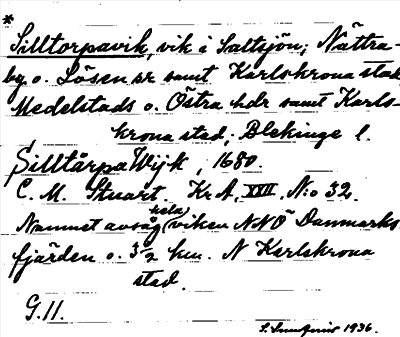 *
Silltorpavik, vik i Saltsjön; Nättra-
by o. Lösen sr samt Karlskrona stad
Medelstads o. Östra hdr samt Karls-
krona stad; Blekinge l.
Silltårpa Wijk, 1680.
C. M. Stuart. Kr A, XVII, N:o 32.
Namnet avsåg hela viken NNÖ Danmarks-
fjärden o. 3½ km. N Karlskrona
stad.
G.11.
1936.